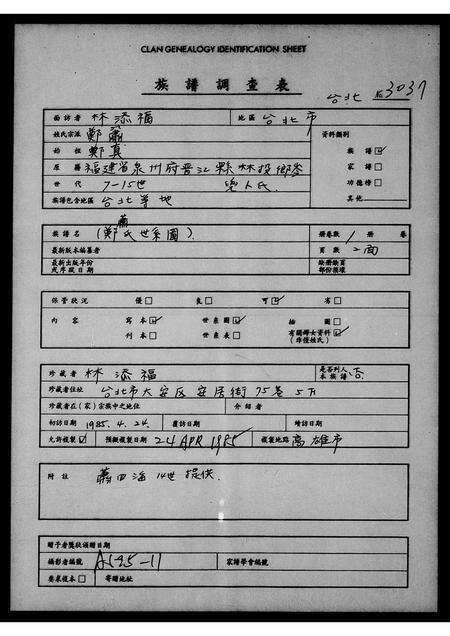 CLAN GENEALOGY IDENTIFICATION SHEET
族譜調查表
台北 № 3037
面訪者 林添福 地區 台北市
姓氏宗派 鄭蕭 資料類別
始祖 鄭真 族譜☑
原籍 福建省泉州府晉江縣林投鄉 家譜□
世代 7-15世 功德榜□
族譜包含地區 台北等地 其他
族譜名 (鄭蕭氏世系圖) 冊卷數 1 冊 卷
最新版本編纂者 頁數 2面
最新出版年份 缺冊缺頁
或序跋日期 部份損壞
保管狀況 優□ 良□ 可☑ 劣□
內容 寫本☑ 世系圖☑ 繪圖□
刊本□ 世系表□ 有關婦女資料☑
(非僅姓氏)
珍藏者 林添福 是否列入本族譜 否
珍藏者住址 台北市大安區安居街75巷5下
珍藏者在(家)宗族中之地位 介紹者
初訪日期 1985.4.24. 覆訪日期 續訪日期
允許複製☑ 預擬複製日期 24 APR 1985 複製地點 高雄市
附註 蕭四海14世提供.
贈予者獎狀頒贈日期
攝影者編號 A195-11 家譜學會編號
要求複本□ 寄贈地址